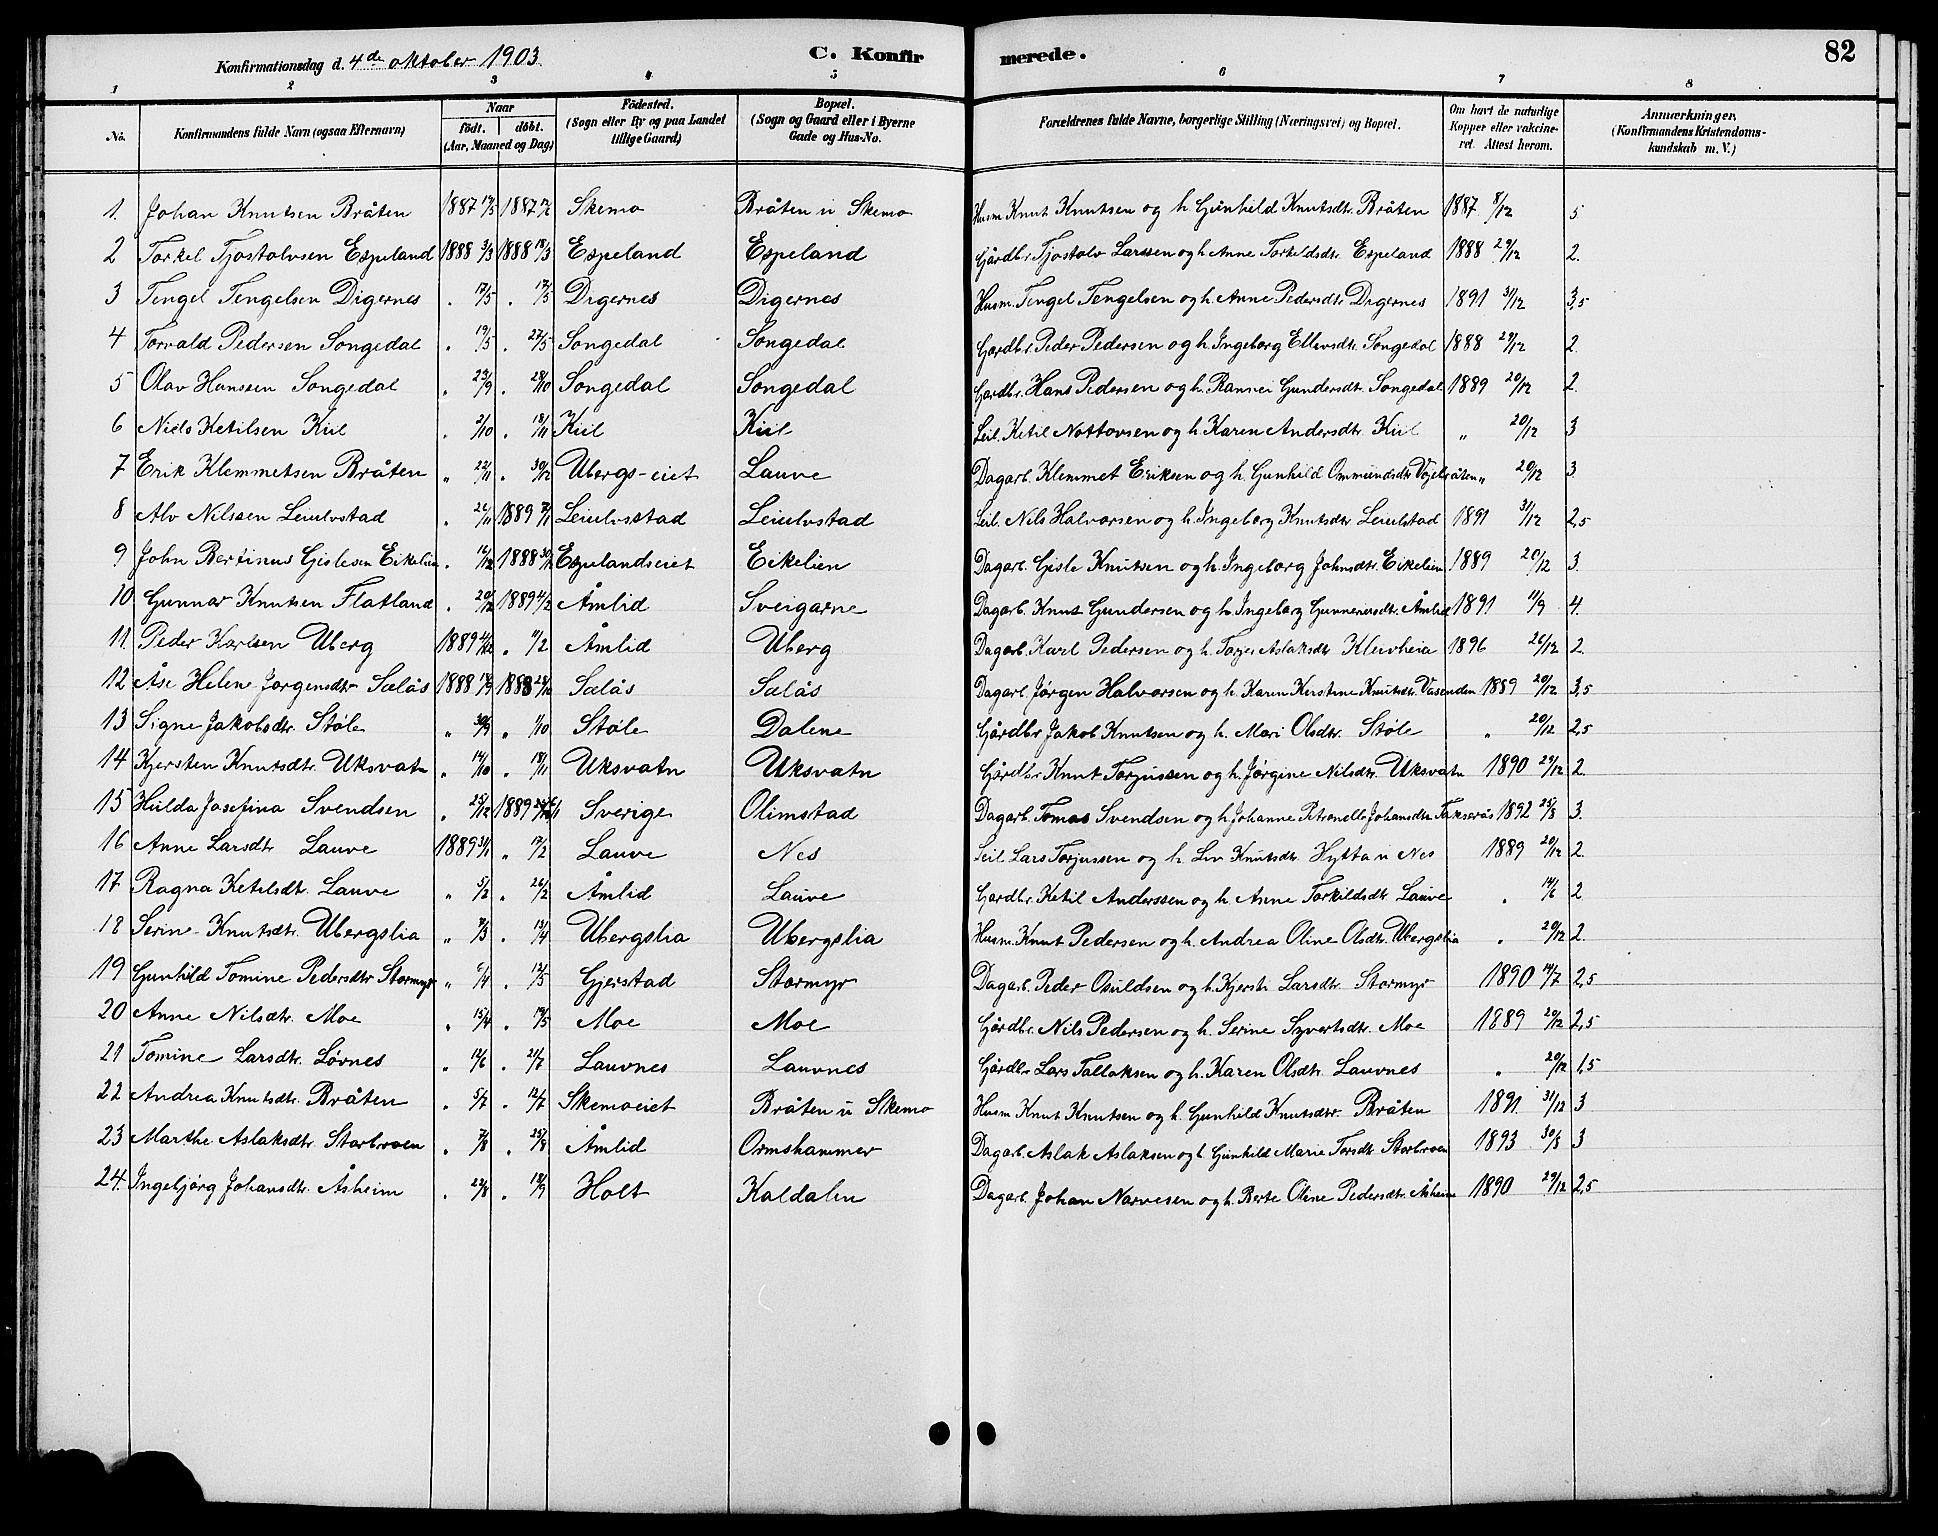 Konfirmationsdag d. 4de oktober 1903. C. Konfirmerede. 82
1 2 3 4 5 6 7 8
No. Konfirmandens fulde Navn (ogsaa Efternavn) Naar födt. döbt. (Aar, Maaned og Dag) Födested. (Sogn eller By og paa Landet tillige Gaard) Bopæl. (Sogn og Gaard eller i Byerne Gade og Hus-No. Forældrenes fulde Navne, borgerlige Stilling (Næringsvei) og Bopæl. Om havt de naturlige Kopper eller vakcineret. Attest herom. Anmærkninger, (Konfirmandens Kristendomskundskab m. V.)
1. Johan Knutsen Bråten 1887 1887 Skemo Bråten u Skemo Husm. Knut Knutsen og h. Gunhild Knutsdtr. Bråten 1887 8/12 5
2 Torkel Tjostolvsen Espeland 1888 3/3 1888 18/3 Espeland Espeland Gårdbr. Tjostolv Larssen og h. Anne Torkildsdtr. Espeland 1888 29/12 2.
3 Tengel Tengelsen Digernes . 17/5 . 17/5 Digernes Digernes Husm. Tengel Tengelsen og h. Anne Pedersdtr. Digernes 1891 31/12 3,5
4 Torvald Pedersen Songedal . 19/5 . 27/5 Songedal Songedal Gårdbr. Peder Pedersen og h. Ingeborg Ellevsdtr. Songedal 1888 29/12 2.
5 Olav Hanssen Songedal . 23/9 . 28/10 Songedal Songedal Gårdbr. Hans Pedersen og h. Rannei Gundersdtr. Songedal 1889 20/12 2.
6 Niels Ketilsen Kiil . 2/10 . 18/11 Kiil Kiil Leil. Ketil Nottovsen og h. Karen Andersdtr. Kiil " 20/12 3
7 Erik Klemmetsen Bråten " 22/11 . 30/12 Ubergs-eiet Lauve Dagarb. Klemmet Eriksen og h. Gunhild Ommundsdtr. " 20/12 3.
8 Alv Nilssen Leiulvstad . 26/11 1889 Leiulvsstad Leiulvstad Leil. Nils Halvorsen og h. Ingeborg Knutsdtr. Leiulstad 1891 31/12 2,5
9 John Bertinus Gislesen Eikelien . 16/12 1888 Espelandseiet Eikelien Dagarb. Gisle Knutsen og h. Ingeborg Johnsdtr. Eikelien 1889 20/12 3.
10 Gunnar Knutsen Flatland . 20/12 1889 4/2 Åmlid Sveigarne Dagarb. Knut Gundersen og h. Ingeborg Gunnersdtr. Åmlid 1891 11/9 4.
11. Peder Karlsen Uberg 1889 . 11/2 Åmlid Uberg Dagarb. Karl Pedersen og h. Torjer Aslaksdtr. Kleivheia 1896 26/12 2.
12 Åse Helene Jørgensdtr. Sælås 1888 1888 28/10 Sælås Sælås Dagarb. Jørgen Halvorsen og h. Karen Kirstine Knutsdtr. Vasenden 1889 20/12 3,5
13 Signe Jakobsdtr. Støle " 30/9 " 1/10 Støle Dalene Gårdbr. Jakob Knutsen og h. Mari Olsdtr. Støle " 20/12 2,5
14 Kjersten Knutsdtr. Uksvatn " 14/10 . 18/11 Uksvatn Uksvatn Gårdbr. Knut Torjussen og h. Jørgine Nilsdtr. Uksvatn 1890 29/12 2.
15 Hulda Josefina Svendsen . 25/12 1889 Sverige Olimstad Dagarb. Tomas Svendsen og h. Johanne Petronelle Johansdtr. 1892 25/8 3.
16 Anne Larsdtr. Lauve 1889 31/1 " 17/2 Lauve Nes Leil. Lars Torjussen og h. Liv Knutsdtr. Hytta u Nes 1889 20/12 2.
17 Ragna Ketilsdtr. Lauve " 5/2 " 26/2 Åmlid Lauve Gårdbr. Ketil Anderssen og h. Anne Torkildsdtr. Lauve " 14/6 2
18 Serine Knutsdtr. Ubergslia " 7/3 . 13/4 Ubergslia Ubergslia Husm. Knut Pedersen og h. Andrea Oline Olsdtr. Ubergslia " 20/12 2.
19 Gunhild Tomine Pedersdtr. Stormyr " 6/4 . 12/5 Gjerstad Stormyr Dagarb. Peder Osuldsen og h. Kjersti Larsdtr. Stormyr 1890 14/7 2,5
20 Anne Nilsdtr. Moe " 15/4 . 19/5 Moe Moe Gårdbr. Nils Pedersen og h. Serine Syvertsdtr. Moe 1889 20/12 2,5
21 Tomine Larsdtr. Løvnes " 12/6 . 21/7 Lauvnes Lauvnes Gårdbr. Lars Tallaksen og h. Karen Olsdtr. Lauvnes " 20/12 1,5
22 Andrea Knutsdtr. Bråten . 5/7 . 12/7 Skemoeiet Bråten u Skemo Husm. Knut Knutsen og h. Gunhild Knutsdtr. Bråten 1891 31/12 3
23 Marthe Aslaksdtr. Storbroen . 7/8 . 25/8 Åmlid Ormshammer Dagarb. Aslak Aslaksen og h. Gunhild Marie Torsdtr. Storbroen 1893 30/8 3
24. Ingebjørg Johansdtr. Åsheim . 22/8 . 18/9 Holt Kaldalen Dagarb. Johan Narvesen og h. Berte Oline Pedersdtr. Åsheim 1890 29/12 2,5